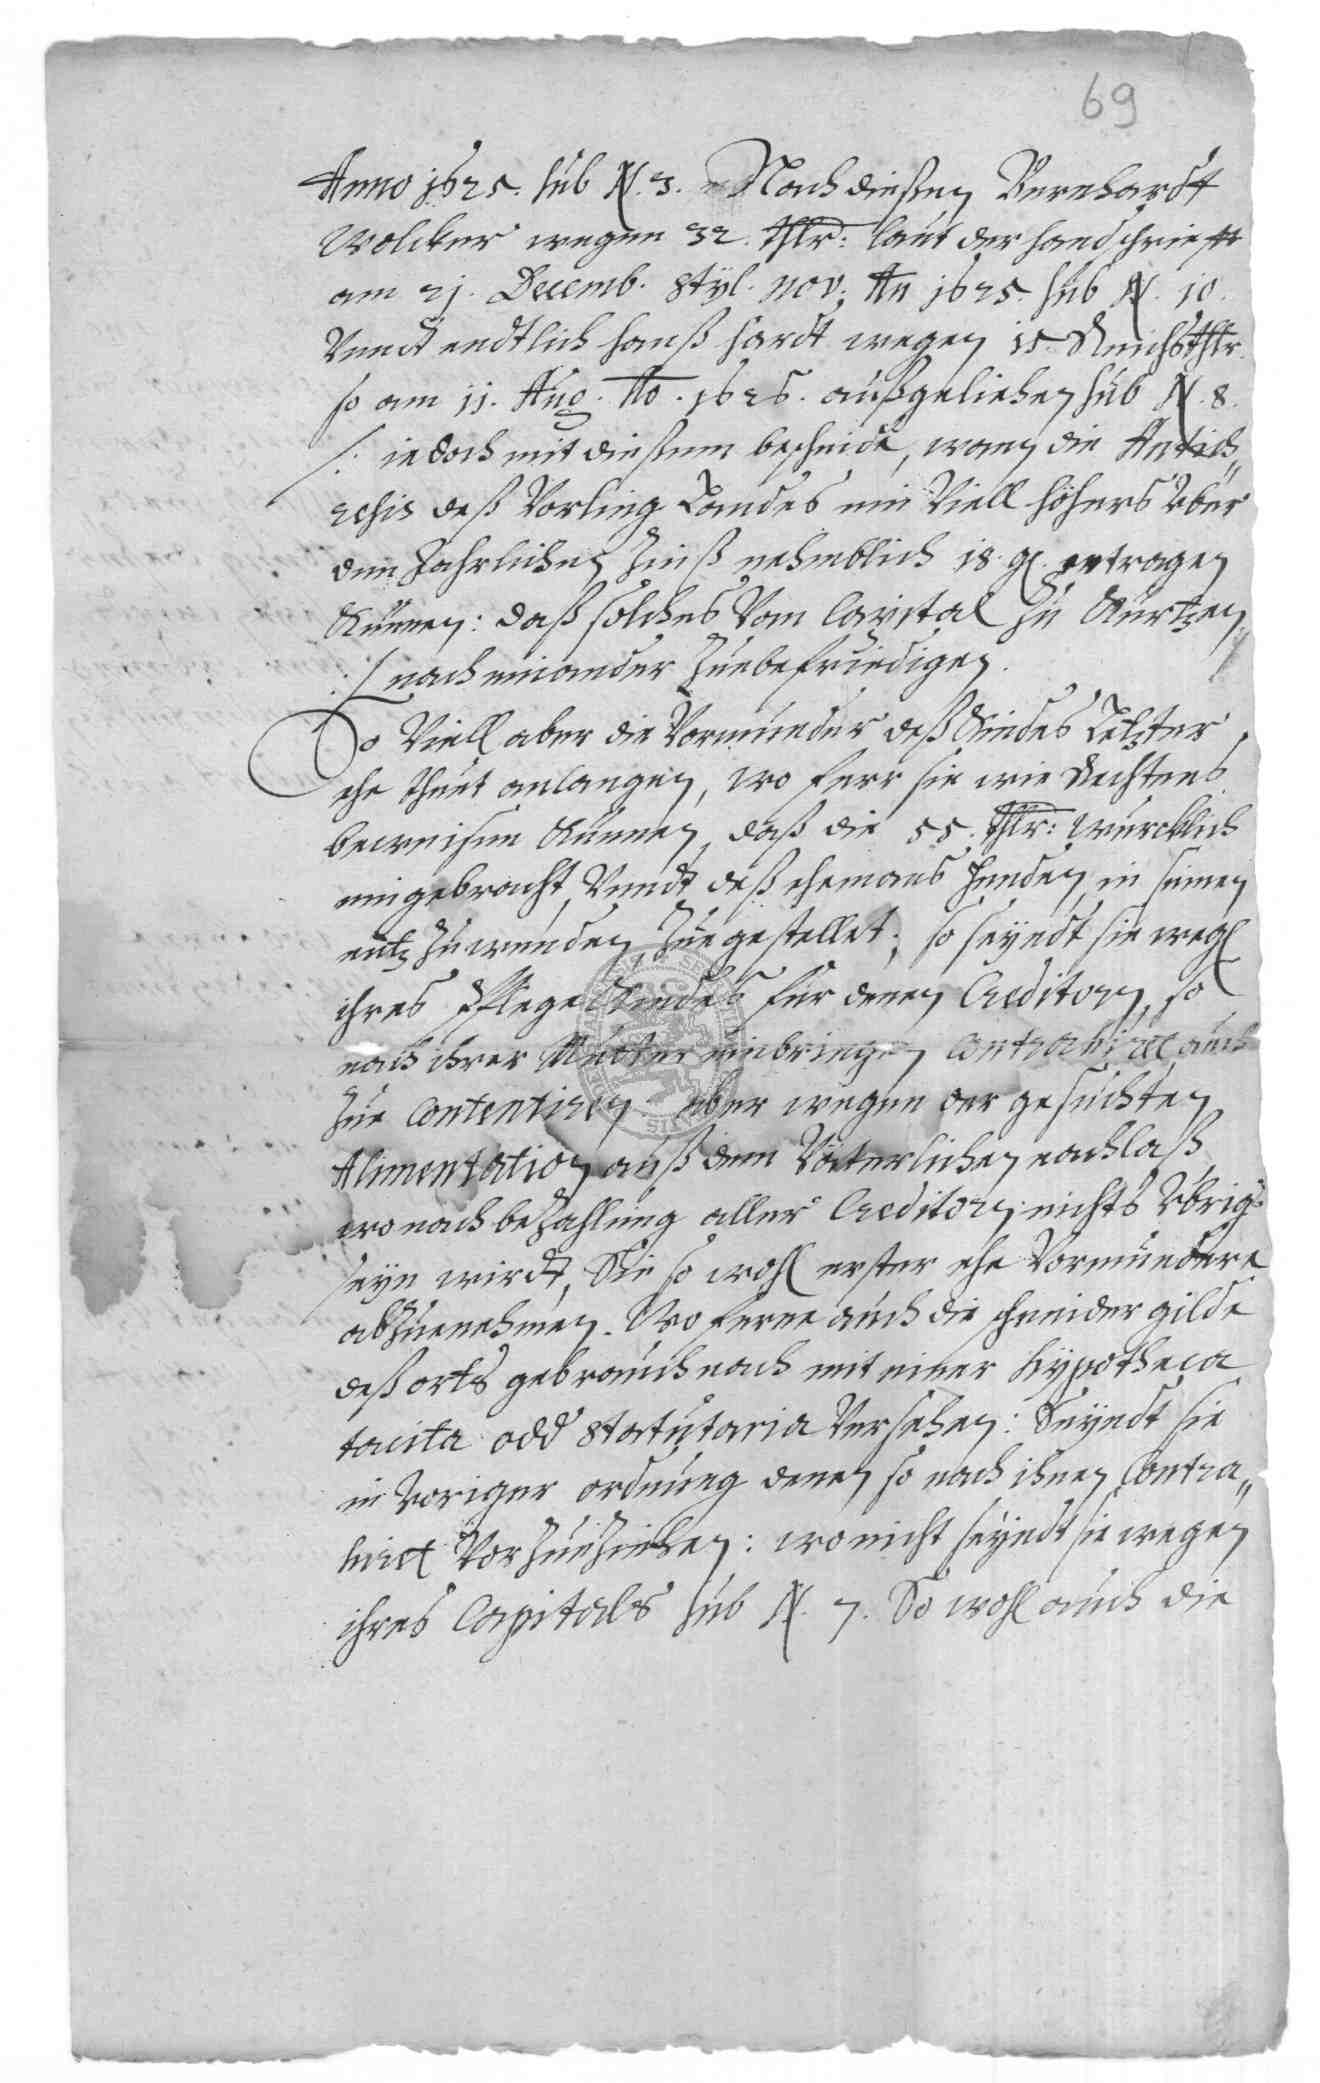 69
Anno 1625. sub N. 3. Nach diesen Bernhardt
Wolcker wegen 32. thlr: laut der handschriefft
am 21. Decemb. styl. nov. An 1625. sub N. 10.
Vnndt endtlich hanß hardt wegen 15 Reichsthlr
so am 11. Aug. Ao. 1626. außgeliehen sub N. 8.
/: iedoch mit diesem bescheide, wan die Antich„
resis deß Vorling Landes ein Viell höhers Vber
den Jahrlichen Zinß nehmblich 18 gl. ertragen
Können: daß solches Vom Capital zu Kürtzen
:/ nach einander zuebefriedigen.
So Viell aber die Vormünder deß Kindes Letzter
ehe thuet anlangen, wo fern sie wie Rechtens
beweisen Können, daß die 55. thlr: würcklich
eingebracht, Vnndt deß ehemans henden, in seinen
nutz zuwenden, zuegestellet; so seyndt sie wegl
ihres PflegeKindes für denen Creditorn, so
nach ihrer Mutter einbringen contrahiret auch
zue contentiren aber wegen der gesuchten
Alimentation auß dem Väterlichen nachlaß
wo nach bezahlung aller Creditorn nichts Vbrig
seyn wirdt, Sie so wohl erster ehe Vormündere
abzuenehmen. Wo ferne auch die schneider gilde
deß orts gebrauch nach mit einer hypotheca
tacita odd statutaria Versehen: Seyndt sie
in Voriger ordnung denen so nach ihnen Contra„
hiret Vorzueziehen: wo nicht seyndt sie wegen
ihres Capitals sub N. 7. So wohl auch die